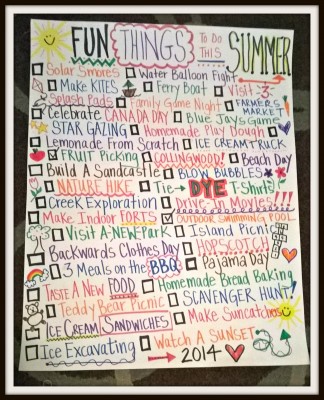 FUN THINGS TO DO THIS SUMMER
Solar Smores Water Balloon Fight
Make KITES Ferry Boat Visit 3
Splash Pads Family Game Night FARMERS MARKETS
Celebrate CANADA DAY Blue Jays Game
STAR GAZING Homemade Play Dough
Lemonade From Scratch ICE CREAM TRUCK
Fruit Picking COLLINGWOOD! Beach Day
Build A Sandcastle BLOW BUBBLES
NATURE HIKE Tie DYE T-Shirts
Creek Exploration Drive-In Movies!!!
Make Indoor FORTS OUTDOOR SWIMMING POOL
Visit A NEW Park Island Picnic
Backwards Clothes Day HOPSCOTCH
3 Meals on the BBQ Pajama Day
TASTE A New FOOD Homemade Bread Baking
Teddy Bear Picnic SCAVENGER HUNT!
ICE CREAM SANDWICHES Make Suncatchers
Ice Excavating Watch A SUNSET
2014